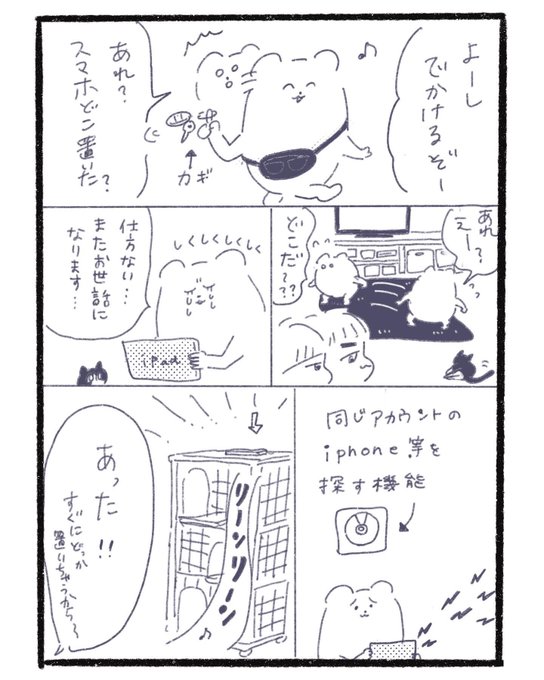 よーし
でかけるぞー
♪
カギ
あれ?
スマホどこ置いた?
あれ
えー?
どこだ〜??
しくしくしくしく
仕方ない…
またお世話に
なります…
iPad
同じアカウントの
iphone等を
探す機能
リーンリーン
♪
あった!!
すぐにどっか
置いちゃうから〜